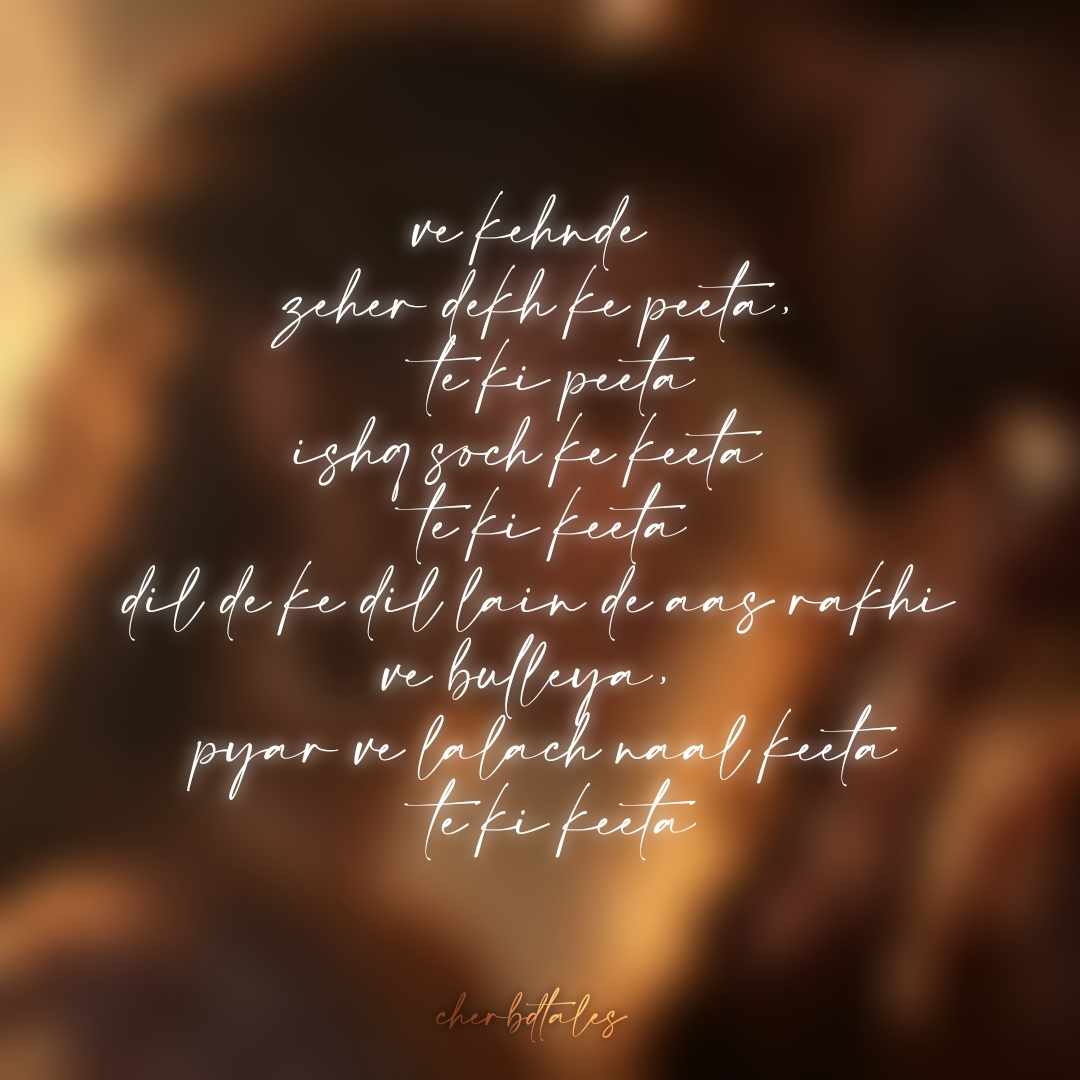 ve kehnde
zeher dekh ke peeta,
te ki peeta
ishq soch ke keeta
te ki keeta
dil de ke dil lain de aas rakhi
ve bulleya,
pyar ve lalach naal keeta
te ki keeta
cherbdtales